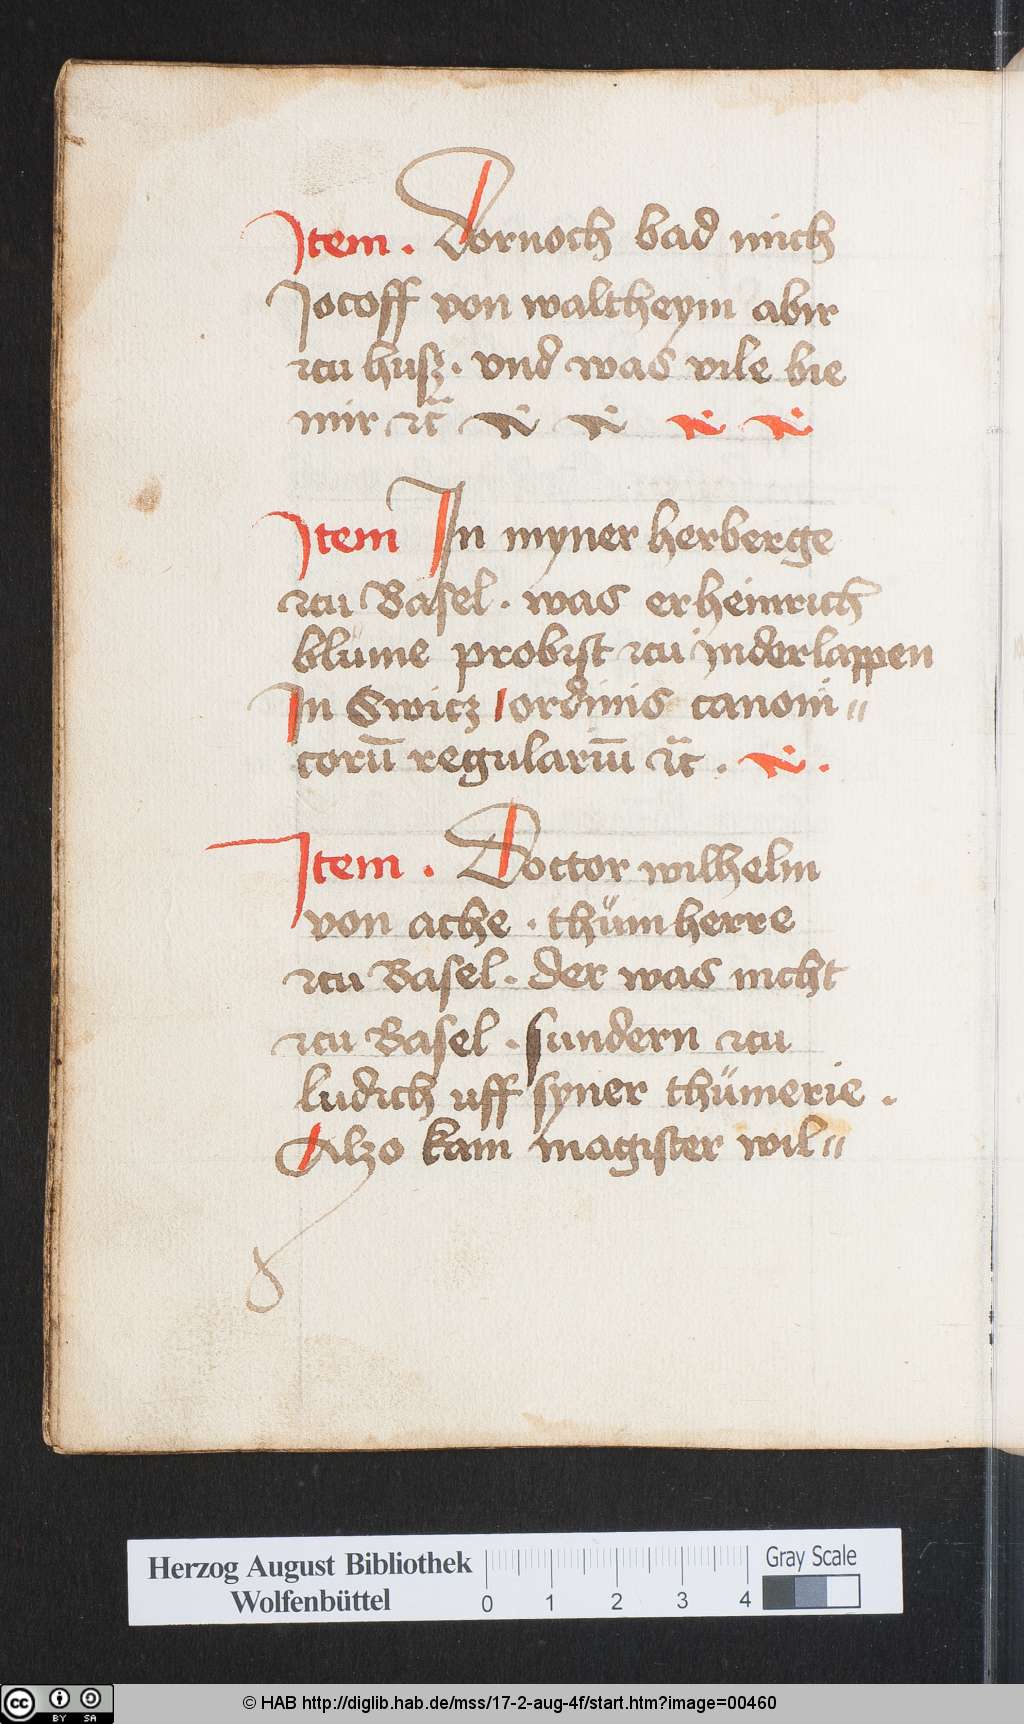 Item . Dornoch bad mich
Jocoff von waltheym abir
tcu husz . vnd was vile bie
mir etc̃
Item In myner herberge
tcu Basel . was er heinrich
blůme probist tcu jnderlappen
In Switz / ordinis canoni〃
corū regulariū etc̃ .
Item . Doctor wilhelm
von ache . thůmherre
tcu Basel . der was nicht
tcu Basel . sundern tcu
ludich uff syner thůmerie .
Alzo kam magister wil〃
Herzog August Bibliothek
Wolfenbüttel
0 1 2 3 4
Gray Scale
cc BY SA
© HAB http://diglib.hab.de/mss/17-2-aug-4f/start.htm?image=00460